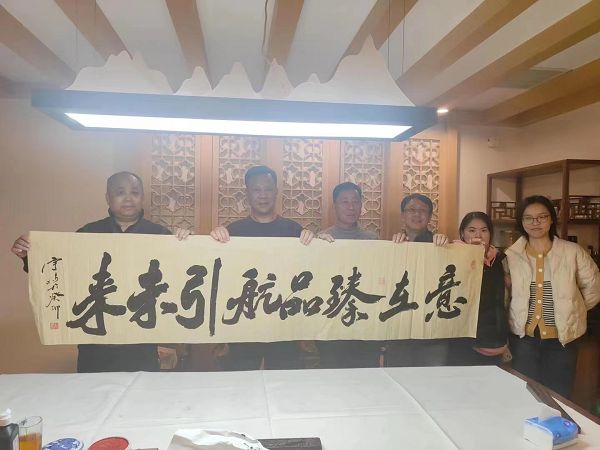 意在臻品航引未来
癸卯